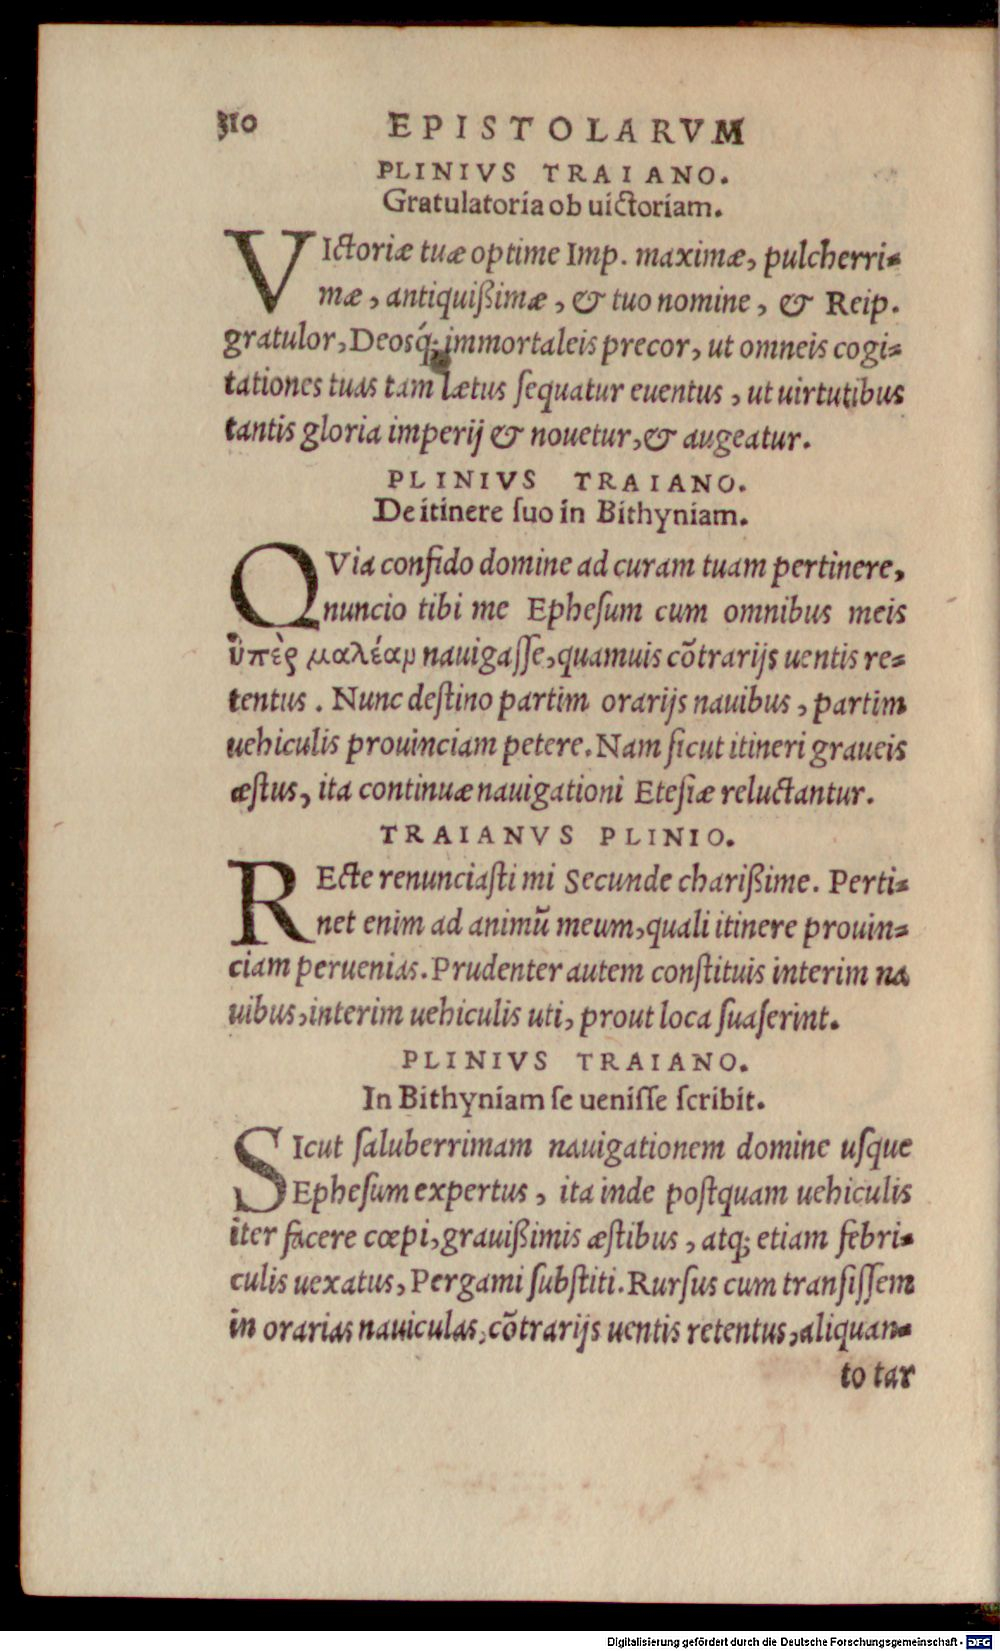 310 EPISTOLARVM
PLINIVS TRAIANO.
Gratulatoria ob uictoriam.
VIctoriæ tuæ optime Imp. maximæ, pulcherri⸗
mæ, antiquißimæ, & tuo nomine, & Reip.
gratulor, Deosq́; immortaleis precor, ut omneis cogi⸗
tationes tuas tam lætus ſequatur euentus, ut uirtutibus
tantis gloria imperij & nouetur, & augeatur.
PLINIVS TRAIANO.
De itinere ſuo in Bithyniam.
QVia confido domine ad curam tuam pertinere,
nuncio tibi me Epheſum cum omnibus meis
ὑπὲρ μαλέαν nauigaſſe, quamuis cõtrarijs uentis re⸗
tentus. Nunc deſtino partim orarijs nauibus, partim
uehiculis prouinciam petere. Nam ſicut itineri graueis
æſtus, ita continuæ nauigationi Eteſiæ reluctantur.
TRAIANVS PLINIO.
REcte renunciaſti mi Secunde charißime. Perti⸗
net enim ad animũ meum, quali itinere prouin⸗
ciam peruenias. Prudenter autem conſtituis interim na
uibus, interim uehiculis uti, prout loca ſuaſerint.
PLINIVS TRAIANO.
In Bithyniam ſe ueniſſe ſcribit.
SIcut ſaluberrimam nauigationem domine uſque
Epheſum expertus, ita inde poſtquam uehiculis
iter facere cœpi, grauißimis æſtibus, atq; etiam febri⸗
culis uexatus, Pergami ſubſtiti. Rurſus cum tranſiſſem
in orarias nauiculas, cõtrarijs uentis retentus, aliquan⸗
to tar
Digitalisierung gefördert durch die Deutsche Forschungsgemeinschaft - DFG